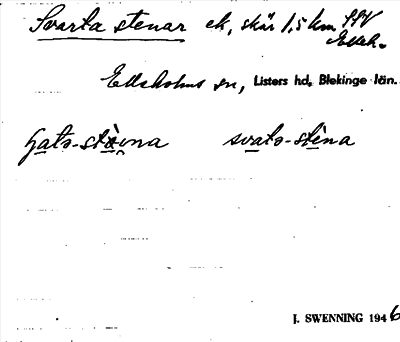 Svarta stenar ek, skär 1,5 km SSV
Elleh.
Elleholms sn, Listers hd. Blekinge län.
svato-stèna
J. SWENNING 1946